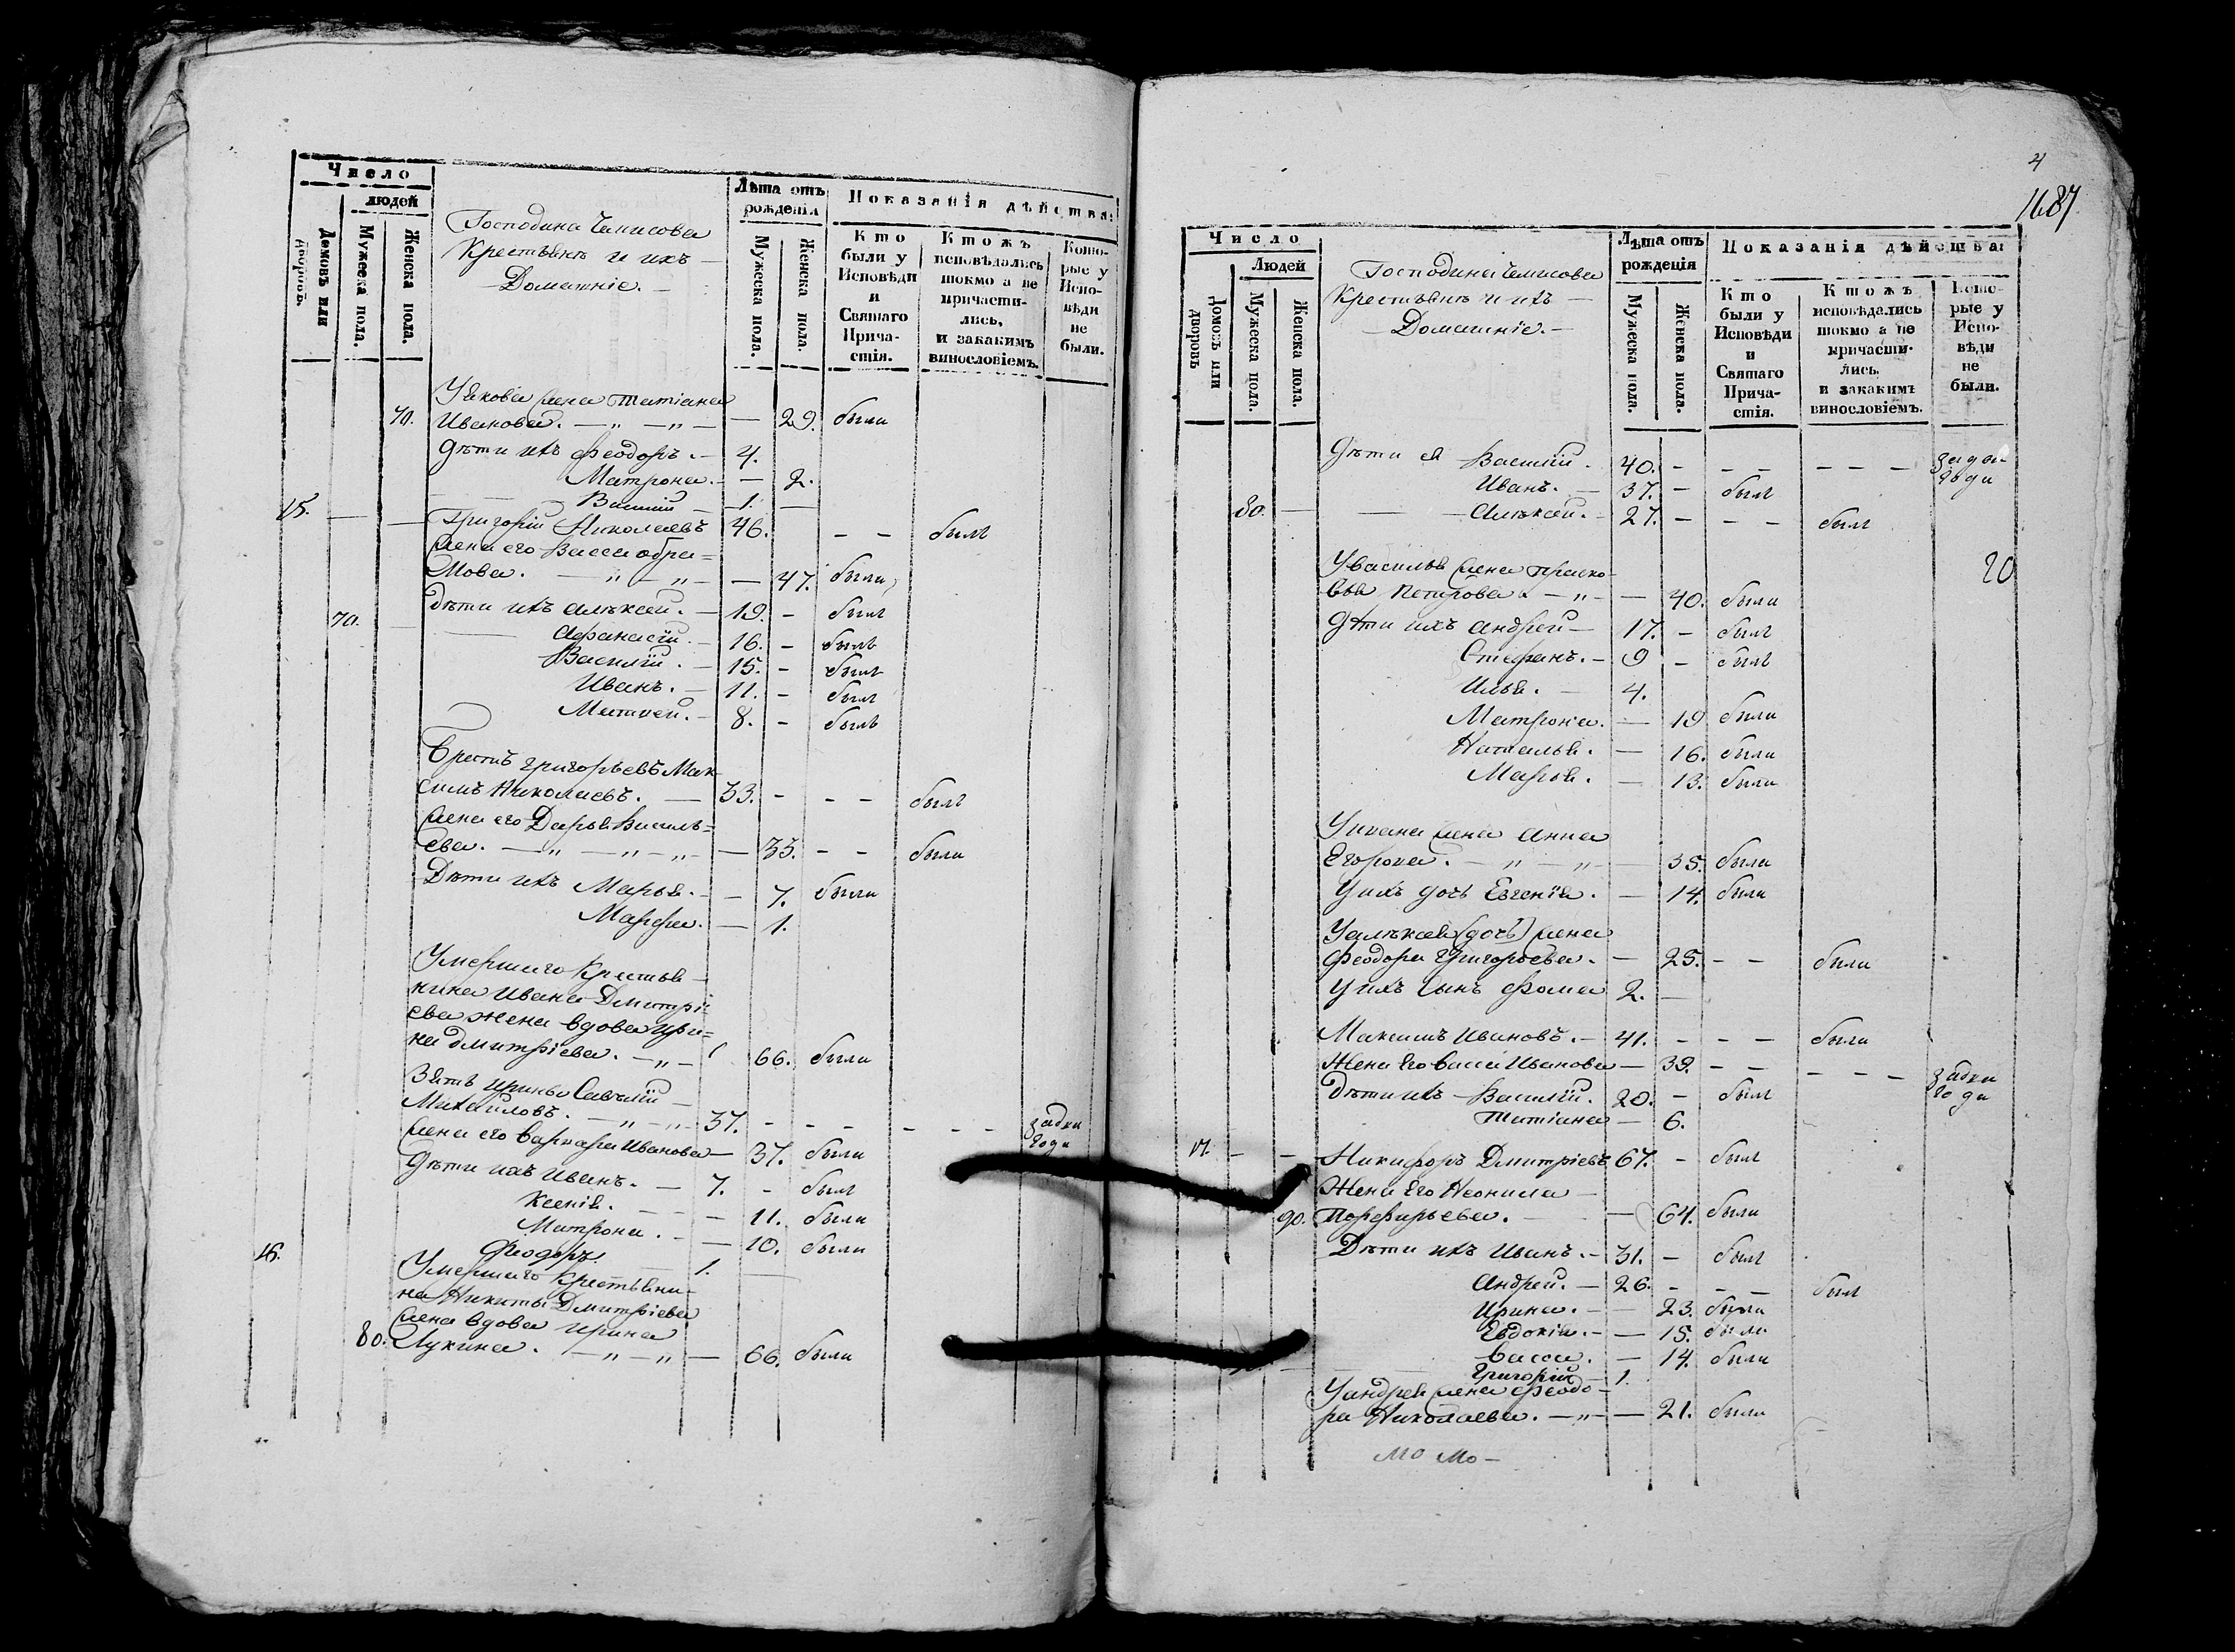 Число
людей
Домовъ или дворовъ.
Мужеска пола.
Женска пола.
Господина Чемисова
Крестьянѣ и ихъ
Домашніе. —
Лѣта отъ рожденія
Мужеска пола.
Женска пола.
Показанія дѣйства:
Кто были у Исповѣди и Святаго Причастія.
Ктожъ исповѣдались токмо а не причастились, и закакимъ винословіемъ.
Которые у Исповѣди не были.
Уякова жена Татіана
70. Иванова. — „ — „ — — 29. была
Дѣти ихъ Феодоръ. — 4.
Матрона. — — 2.
Василій — 1. —
15. — — Григорій Николаевъ 46. — — былъ
жена его Васса Абра=
мова. — „ — „ — — 47. была
70. Дѣти ихъ Алексѣй. — 19. - былъ
Афанасій. — 16. - былъ
Василій. — 15. - былъ
Иванъ. — 11. - былъ
Матвей. — 8. - былъ
Братъ Григорьевъ Мак
симъ Николаевъ. — 33. - - - былъ
жена его Дарья Василь=
ева. — „ — „ — „ — — 35. - - была
Дѣти ихъ Марья. — — 7. была
Марфа. — — 1.
Умершаго Крестья-
нина Ивана Дмитрі-
ева жена вдова Ири=
на Дмитріева. — „ — 66. была
Зять Ирины Савелій
Михайловъ. — „ — „ — 37. - - - - - - задва года
жена его Варвара Иванова — 37. была
Дѣти ихъ Иванъ. — 7. - былъ
Ксенія. — — 11. была
Матрона. — — 10. была
Феодоръ. — 1. —
16. Умершаго Крестьяни-
на Никиты Дмитріева
жена вдова Ирина
80. Лукина. — „ — „ — — 66. была
4
1687.
Число
Людей
Домовъ или дворовъ
Мужеска пола.
Женска пола.
Господина Чемисова
Крестьянѣ и ихъ —
— Домашніе. —
Лѣта отъ рожденія
Мужеска пола.
Женска пола.
Показанія дѣйства:
Кто были у Исповѣди и Святаго Причастія.
Ктожъ исповѣдались токмо а не причастились, и закакимъ винословіемъ.
Которые у Исповѣди не были.
Дѣти ея Василій. 40. - - - - - - задва года
Иванъ. — 37. - былъ
80. — — Алексѣй. — 27. - - - былъ
20
Увасилья жена Праско-
вья Петрова. — „ — — 40. была
Дѣти ихъ Андрей — 17. - былъ
Стефанъ. — 9 - былъ
Илья. — 4.
Матрона. — — 19 была
Наталья. — 16. была
Марья. — 13. была
Уивана жена Анна
Егорова. — „ — „ — — 35. была
Уихъ дочь Евгенія. — 14. была
Уалексѣя (дочь) жена
Феодора Григорьева. — 25. - - была
Уихъ сынъ Фома 2. —
Максимъ Ивановъ. — 41. - - - былъ
Жена Его Васса Иванова — 39. - - - - - задва года
Дѣти ихъ — Василій. 20. - былъ
Татіана — 6.
17. - - Никифоръ Дмитріевъ 67. - былъ
Жена Его Неонила —
90. Порфирьева. — — 64. была
Дѣти ихъ Иванъ. — 31. - былъ
Андрей. — 26. - - - былъ
Ирина. — — 23. была
Евдокія. — — 15. была
Васса. — — 14. была
Григорій — 1.
Уандрея жена Феодо-
ра Николаева. — „ — — 21. была